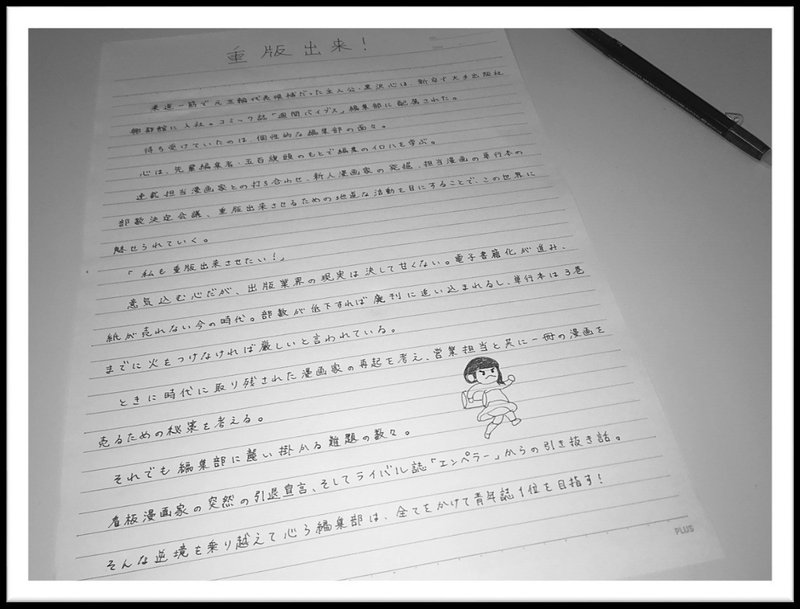 重版出来!
柔道一筋で元五輪代表候補だった主人公・黒沢心は、新卒で大手出版社
興都館に入社。コミック誌「週間バイブス」編集部に配属された。
待ち受けていたのは、個性的な編集部の面々。
心は、先輩編集者・五百旗頭のもとで編集のイロハを学ぶ。
連載担当漫画家との打ち合わせ、新人漫画家の発掘、担当漫画の単行本の
部数決定会議、重版出来させるための地道な活動を目にすることで、この世界に
魅せられていく。
「私も重版出来させたい!」
意気込む心だが、出版業界の現実は決して甘くない。電子書籍化が進み、
紙が売れない今の時代。部数が低下すれば廃刊に追い込まれるし、単行本は3巻
までに火をつけなければ厳しいと言われている。
ときに時代に取り残された漫画家の再起を考え、営業担当と共に一冊の漫画を
売るための秘策を考える。
それでも編集部に襲い掛かる難題の数々。
看板漫画家の突然の引退宣言、そしてライバル誌「エンペラー」からの引き抜き話。
そんな逆境を乗り越えて心ら編集部は、全てをかけて青年誌1位を目指す!
PLUS